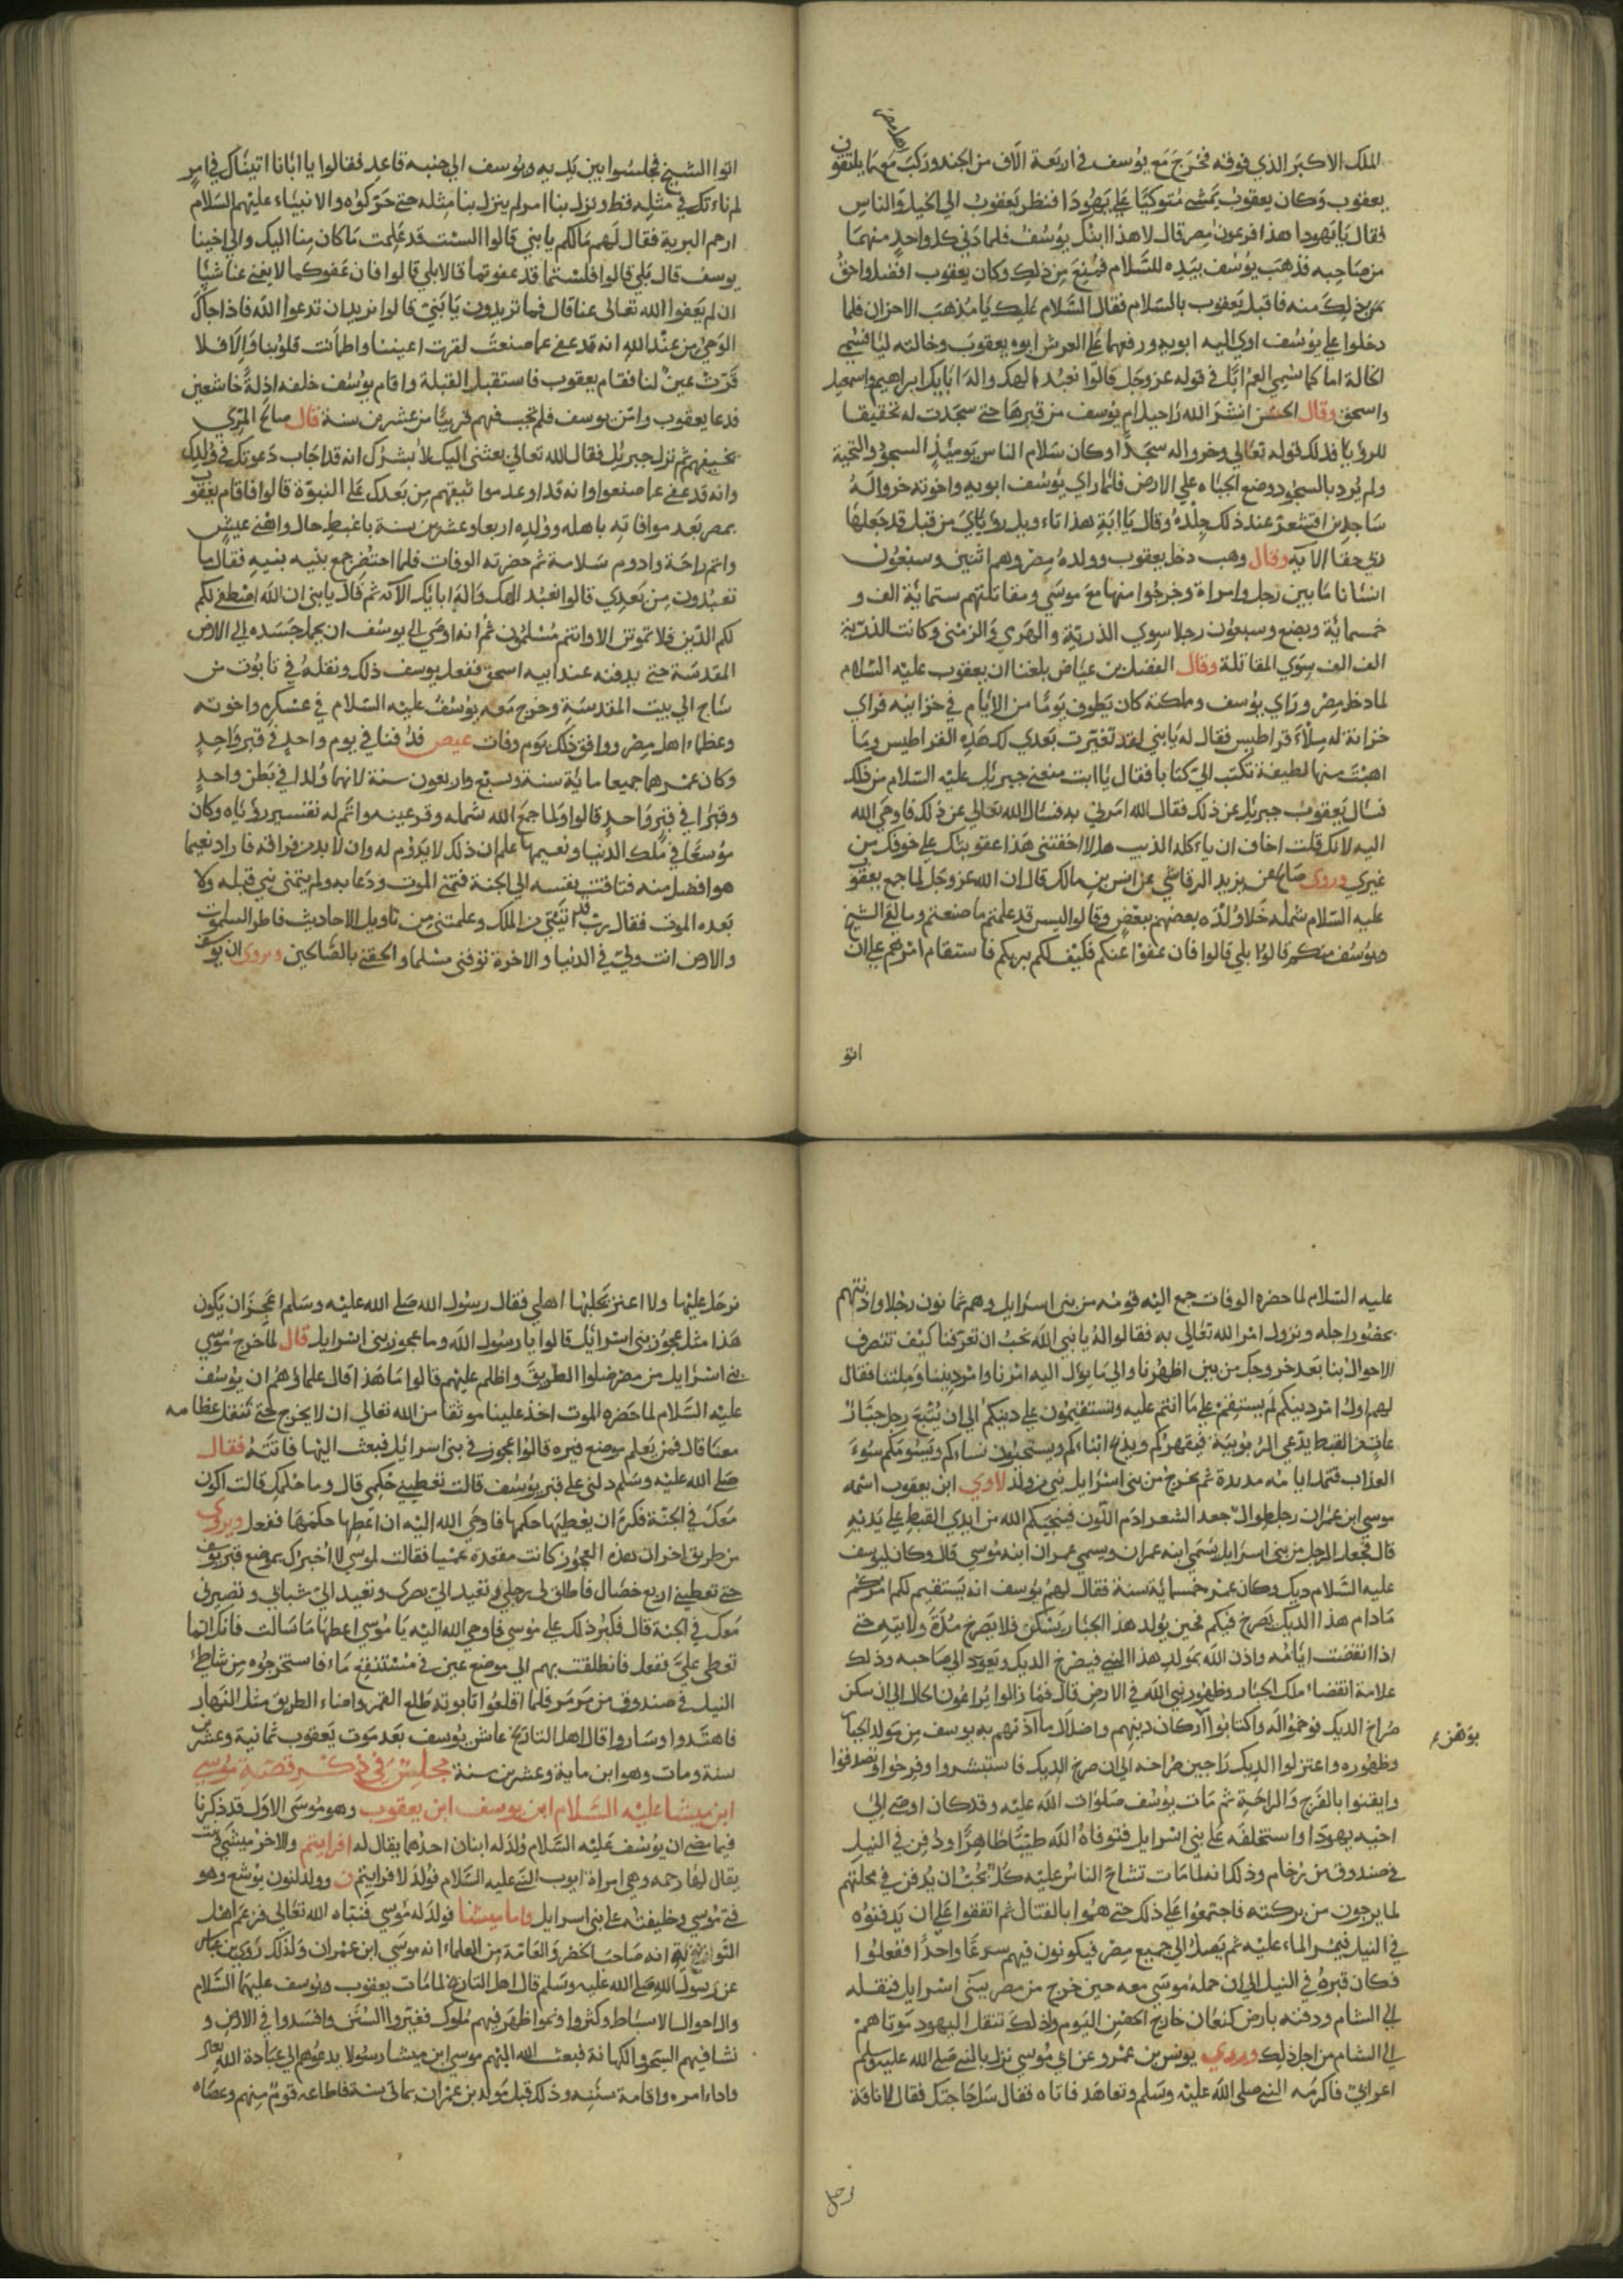 الملك الاكبر الذي فوقه فخرج مع يوسف في اربعة الاف من الجند وركب معهما يلتقون
اهل مصر
يعقوب وكان يعقوب يمشي متوكيا على يهودا فنظر يعقوب الى الخيل والناس
فقال يا يهودا هذا فرعون مصر قال لا هذا ابنك يوسف فلما دني كل واحد منهما
من صاحبه فذهب يوسف بيده للسلام فمنع من ذلك وكان يعقوب افضل واحق
بذلك منه فاقبل يعقوب بالسلام فقال السلام عليك يا مذهب الاحزان فلما
دخلوا على يوسف اوي اليه ابويه ورفعهما على العرش ابوه يعقوب وخالته ليا فسمي
الخالة اما كما سمي العم ابا في قوله عز وجل قالوا نعبد الهك واله ابايك ابراهيم واسمعيل
واسحق وقال الحسن انشر الله راحيل ام يوسف من قبرها حتى سجدت له تحقيقا
للرؤيا فذلك قوله تعالي وخروا له سجدا وكان سلام الناس يوميذ السجود والتحية
ولم يرد بالسجود وضع الجباه علي الارض فلما راي يوسف ابويه واخوته خروا له
ساجدين اقشعر عند ذلك جلده وقال يا ابة هذا تاءويل رؤياي من قبل قد جعلها
ربي حقا الاية وقال وهب دخل يعقوب وولده مصر وهم اثنين وسبعون
انسانا ما بين رجل وامراة وخرجوا منها مع موسي ومقاتلتهم ستماية الف و
خمسماية وبضع وسبعون رجلا سوي الذرية والهرمي والزمني وكانت الذرية
الف الف سوي المقاتلة وقال الفضل بن عياض بلغنا ان يعقوب عليه السلام
لما دخل مصر وراي يوسف ومملكته كان يطوف يوما من الايام في خزاينه فراي
خزانة له ملاءة قراطيس فقال له يا بني لقد تغيرت بعدي لك هذه القراطيس وما
اهبت منها لطيفة تكتب الي كتابا فقال يا ابت منعني جبريل عليه السلام من ذلك
فسال يعقوب جبريل عن ذلك فقال الله امرني به فسال الله تعالي عن ذلك فاوحي الله
اليه لانك قلت اخاف ان ياءكله الذيب هلا اخفتني هذا عقوبتك على خوفك من
غيري وروي صالح عن يزيد الرقاشي عن انس بن مالك قال ان الله عز وجل لما جمع يعقوب
عليه السلام شمله خلا ولده بعضهم ببعض وقالوا اليس قد علمتم ما صنعتم وما لقي الشيخ
ويوسف منكم قالوا بلي قالوا فان عفوا عنكم فكيف لكم بربكم فاستقام امرهم على ان
اتوا
اتوا الشيخ فجلسوا بين يديه ويوسف الي جنبه قاعد فقالوا يا ابانا اتيناك في امر
لم ناءتك في مثله قط ونزل بنا امر لم ينزل بنا مثله حتى حركوه والانبياء عليهم السلام
ارحم البرية فقال لهم مالكم يا بني قالوا الست قد علمت ما كان منا اليك والي اخينا
يوسف قال بلي قالوا افلستما قد عفوتما قالا بلي قالوا فان عفوكما لا يغني عنا شيا
ان لم يعفوا الله تعالى عنا قال فما تريدون يا بني قالوا نريد ان تدعوا الله فاذا جاك
الوحي من عند الله انه قد عفي عما صنعت لقرت اعيننا واطمانت قلوبنا والا فلا
قرت عين لنا فقام يعقوب فاستقبل القبلة واقام يوسف خلفه اذلة خاشعين
فدعا يعقوب وامن يوسف فلم يجب فيهم قريبا من عشرين سنة قال صالح المري
يخيفهم ثم نزل جبريل فقال الله تعالي بعثني اليك لابشرك انه قد اجاب دعوتك في ولدك
وانه قد عفي عما صنعوا وانه قد اوعد مواثيقهم من بعدك على النبوة قالوا فاقام يعقوب
بمصر بعد موافاته باهله وولده اربعا وعشرين سنة باغبط حال واهني عيش
واتم راحة وادوم سلامة ثم حضرته الوفات فلما احتضر جمع بنيه بنيه فقال ما
تعبدون من بعدي قالوا نعبد الهك واله ابايك الآية ثم قال يا بني ان الله اصطفي لكم
لكم الدين فلا تموتن الا وانتم مسلمون ثم انه اوحي الي يوسف ان يحمل جسده الي الارض
المقدسة حتى يدفنه عند ابيه اسحق ففعل يوسف ذلك ونقله في تابوت من
ساج الي بيت المقدسة وخرج معه يوسف عليه السلام في عسكره واخوته
وعظماء اهل مصر ووافق ذلك يوم وفات عيص فدفنا في يوم واحد في قبر واحد
وكان عمرهما جميعا ماية سنة وسبع واربعون سنة لانهما ولدا في بطن واحد
وقبرا في قبر واحد قالوا ولما جمع الله شمله وقر عينه واتم له تفسير رؤياه وكان
موسعا في ملك الدنيا ونعيمها علم ان ذلك لا يدوم له وان لا بد من فراقه فاراد نعيما
هو افضل منه فتاقت نفسه الي الجنة فتمني الموت ودعا به ولم يتمني نبي قبله ولا
بعده الموت فقال رب قد اتيتني من الملك وعلمتني من تاويل الاحاديث فاطر السموات
والارض انت وليي في الدنيا والاخرة توفني مسلما والحقني بالصالحين ويروي ان يوسف
عليه السلام لما حضره الوفات جمع اليه قومه من بني اسرايل وهم ثمانون رجلا واذنهم
بحضور اجله ونزول امر الله تعالي به فقالوا له يا نبي الله نحب ان تعرفنا كيف تتصرف
الاحوال بنا بعد خروجك من بين اظهرنا والي ما يؤل اليه امرنا وامر ديننا وملتنا فقال
لهم اولا امر دينكم لم يستقم على ما انتم عليه وتستقيمون على دينكم الي ان يبتع رجل جبار
عات من القبط يدعي الربوبية فيقهركم ويذبح ابناءكم ويستحيون نساءكم ويسومكم سوء
العذاب فتمد ايامه مديدة ثم يخرج من بني اسرايل نبي من ولد لاوي ابن يعقوب اسمه
موسي ابن عمران رجل طوال جعد الشعر ادم اللون فينجيكم الله من ايدي القبط على يديه
قال فجعل الرجل من بني اسرايل يسمي ابنه عمران ويسمي عمران ابنه موسي قال وكان ليوسف
عليه السلام ديك وكان عمره خمسماية سنة فقال لهم يوسف انه يستقيم لكم امركم
مادام هذا الديك يصرخ فيكم فحين يولد هذا الجبار يسكن فلا يصرخ مدة ولايته حتى
اذا انقضت ايامه واذن الله بمولد هذا النبي فيصرخ الديك ويعود الي صاحبه وذلك
علامة انقضاء ملك الجبار وظهور نبي الله في الارض قال فما زالوا يراعون الحال الي ان سكن
صراخ الديك فوجموا له واكتابوا اركان دينهم واضلال ما اذنهم به يوسف من مولد الجبار
بوهن ع
وظهوره واعتزلوا الديك راجين صراخه الي ان صرخ الديك فاستبشروا وفرحوا وتصدقوا
وايقنوا بالفرج والراحة ثم مات يوسف صلوات الله عليه وقد كان اوصي الي
اخيه يهودا واستخلفه على بني اسرايل فتوفاه الله طيبا طاهرا ودفن في النيل
في صندوق من رخام وذلك انه لما مات تشاح الناس عليه كل يحب ان يدفن في محلتهم
لما يرجون من بركته فاجتمعوا على ذلك حتى هموا بالقتال ثم اتفقوا على ان يدفنوه
في النيل فيمر الماء عليه ثم يصل الي جميع مصر فيكونون فيهم سرعا واحدا ففعلوا
فكان قبره في النيل الي ان حمله موسي معه حين خرج من مصر ببني اسرايل فنقله
الي الشام ودفنه بارض كنعان خارج الحصن اليوم ولذلك تنقل اليهود موتاهم
الي الشام من اجل ذلك وروي يونس بن عمرو عن ابي موسي نزل بالنبي صلى الله عليه وسلم
اعرابي فاكرمه النبي صلى الله عليه وسلم وتعاهد فاتاه فقال سل حاجتك فقال لا ناقة
نرحل
نرحل عليها ولا اعنز يحلبها اهلي فقال رسول الله صلى الله عليه وسلم اعجز ان يكون
هذا مثل عجوز بني اسرايل قالوا يا رسول الله وما عجوز بني اسرايل قال لما خرج موسي
بني اسرايل من مصر ضلوا الطريق واظلم عليهم قالوا ما هذا قال علماؤهم ان يوسف
عليه السلام لما حضره الموت اخذ علينا موثقا من الله تعالي ان لا يخرج حتى تنقل عظامه
معنا قال فمن يعلم موضع قبره قالوا عجوز في بني اسرايل فبعث اليها فاتته فقال
صلى الله عليه وسلم دلني على قبر يوسف قالت تعطيني حكمي قال وما حكمك قالت اكون
معك في الجنة فكره ان يعطيها حكمها فاوحي الله اليه ان اعطها حكمها ففعل ويروي
من طريق اخر ان هذه العجوز كانت مقعدة عميا فقالت لموسي لا اخبرك بموضع قبر يوسف
حتى تعطيني اربع خصال فاطلق لي رجلي وتعيد الي بصري وتعيد الي شبابي وتصيرني
معك في الجنة قال فكبر ذلك على موسي فاوحي الله اليه يا موسي اعطها ما سالت فانك انما
تعطي علي ففعل فانطلقت بهم الي موضع عين في مستنقع ماء فاستخرجوه من شاطئ
النيل في صندوق من مرمر فلما اقلعوا تابوته طلع القمر واضاء الطريق مثل النهار
فاهتدوا وساروا قال اهل التاريخ عاش يوسف بعد موت يعقوب ثمانية وعشرين
سنة ومات وهو ابن ماية وعشرين سنة مجلس في ذكر قصة موسي
ابن ميشا عليه السلام ابن يوسف ابن يعقوب وهو موسي الاول قد ذكرنا
فيما مضي ان يوسف عليه السلام ولد له ابنان احدهما يقال له افرايثم والاخر ميشي وبنت
يقال لها رحمه وهي امراة ايوب النبي عليه السلام فولد لافرايثم ن وولد لنون يوشع وهو
فتي موسي وخليفته على بني اسرايل واما ميشا فولد له موسي فنباه الله تعالي فزعم اهل
التواريخ انه صاحب الخضر والعامة من العلماء انه موسي ابن عمران ولذلك روي بن عباس
عن رسول الله صلى الله عليه وسلم قال اهل التاريخ لما مات يعقوب ويوسف عليهما السلام
وال احوال الاسباط وكثروا ونموا ظهر فيهم ملوك فغيروا السنن وافسدوا في الارض و
نشا فيهم السحر والكهانة فبعث الله اليهم موسي ابن ميشا رسولا يدعوهم الي عبادة الله تعالى
واداء امره واقامة سننه وذلك قبل مولد بن عمران بماتي سنة فاطاعه قوم منهم وعصاه